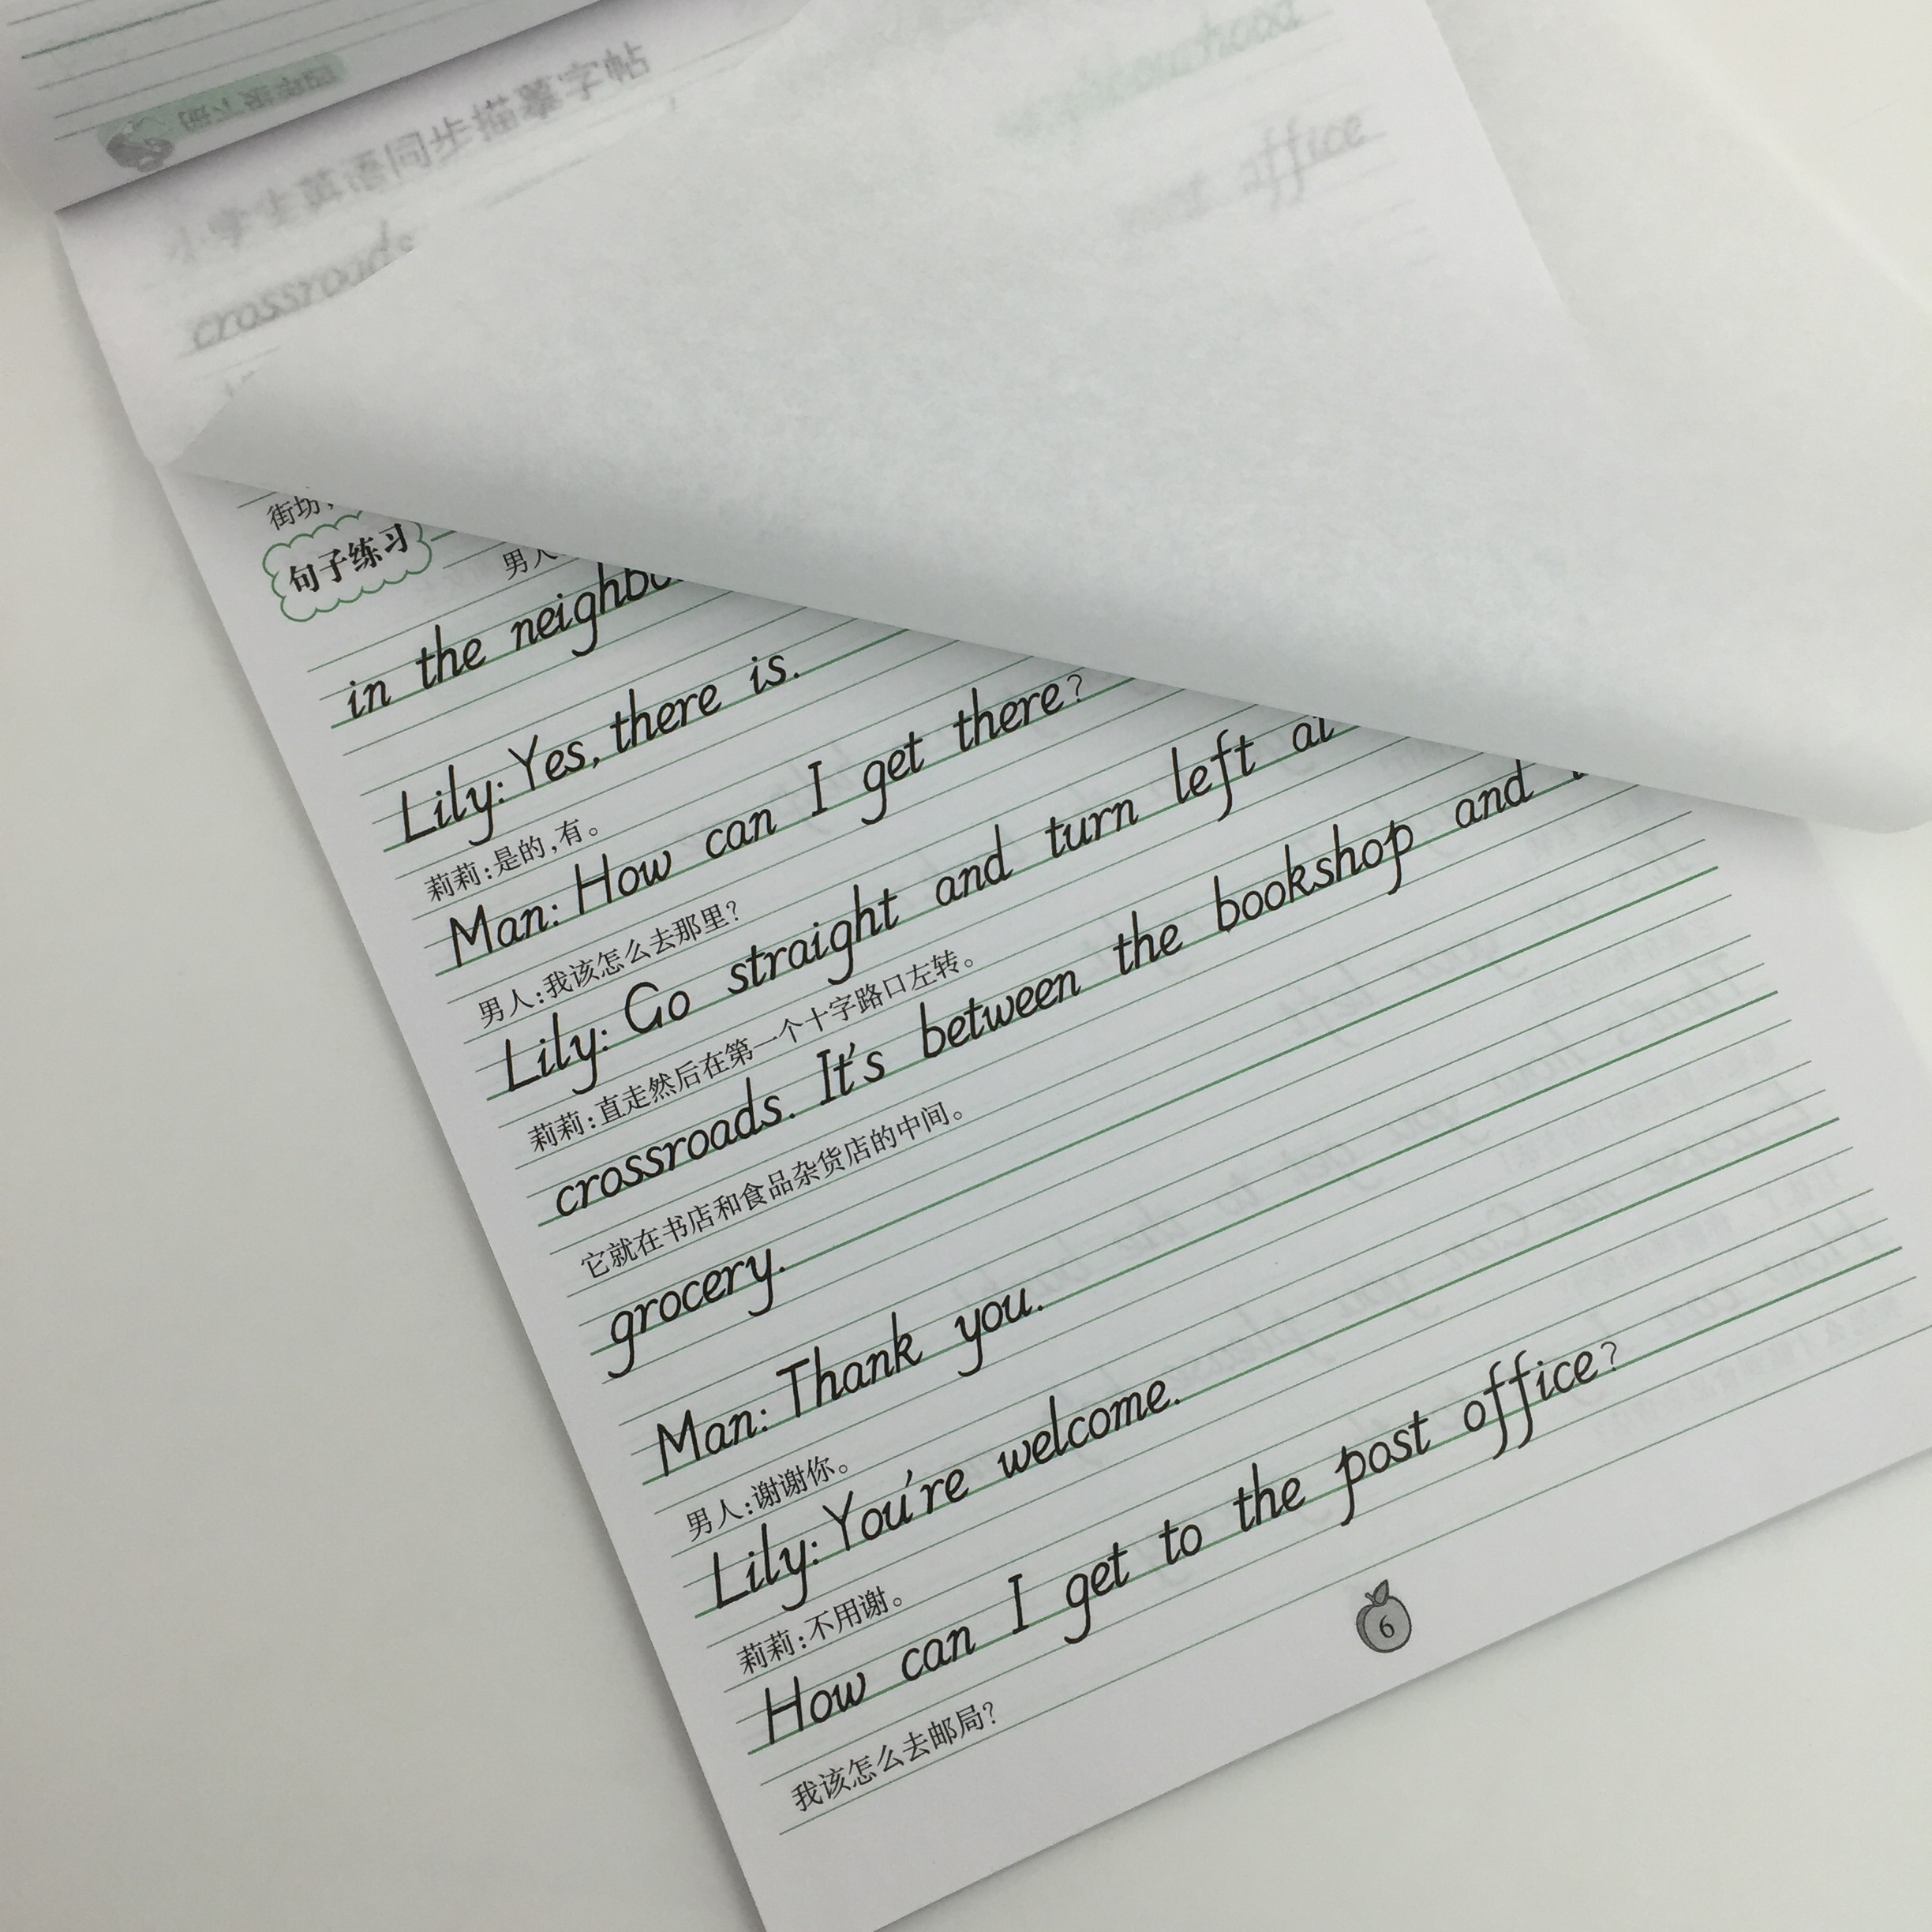 小学生英语同步描摹字帖
crossroads
office
街坊,
句子练习
男人
in the
Lily: Yes, there is.
莉莉:是的,有。
Man: How can I get there?
男人:我该怎么去那里?
Lily: Go straight and turn left
莉莉:直走然后在第一个十字路口左转。
crossroads. It's between the bookshop and
它就在书店和食品杂货店的中间。
grocery.
Man: Thank you.
男人:谢谢你。
Lily: You're welcome.
莉莉:不用谢。
How can I get to the post office?
我该怎么去邮局?
6